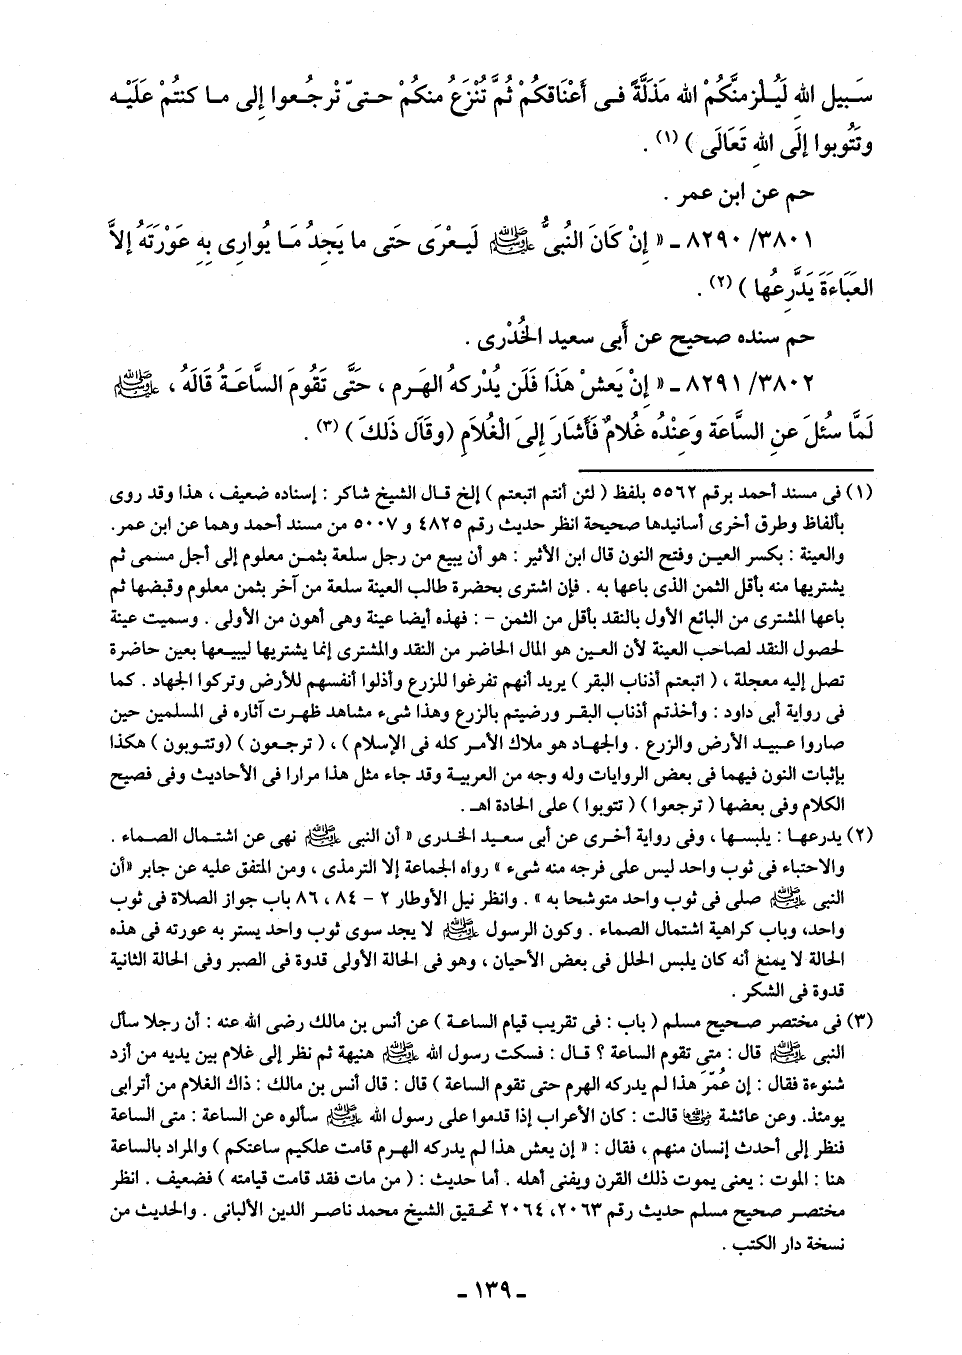 سَبيل اللهِ لَيُلْزِمنَّكُمْ الله مَذَلَّةً فى أَعْنَاقكُمْ ثُمَّ تُنْزَعُ منكُمْ حتىّ تْرجُعوا إلى ما كنتُمْ عَلَيْه
وتَتُوبوا إلَى اللهِ تَعَالَى ) (١) .
حم عن ابن عمر .
٣٨٠١/ ٨٢٩٠ ـ « إنْ كَانَ النُبىُّ ﷺ لَيعْرَى حَتى ما يَجِدُ مَا يُوارِى بِهِ عَوْرَتَهُ إلاَّ
العَبَاءَةَ يَدَّرِعُها ) (٢) .
حم سنده صحيح عن أَبى سعيد الخُدْرى .
٣٨٠٢/ ٨٢٩١ ـ « إنْ يَعشْ هَذَا فَلَن يُدْركهُ الهَرم ، حَتَّى تَقُومَ السَّاعَةُ قَالَهُ ، ﷺ
لَمَّا سئُلَ عنِ السَّاعَة وَعِنْدُه غُلامٌ فَأشَارَ إلىَ الْغُلاَمِ (وقَالَ ذَلكَ ) (٣) .
(١) فى مسند أحمد برقم ٥٥٦٢ بلفظ ( لئن أنتم اتبعتم ) إلخ قال الشيخ شاكر : إسناده ضعيف ، هذا وقد روى
بألفاظ وطرق أخرى أسانيدها صحيحة انظر حديث رقم ٤٨٢٥ و ٥٠٠٧ من مسند أحمد وهما عن ابن عمر.
والعينة : بكسر العين وفتح النون قال ابن الأثير : هو أن يبيع من رجل سلعة بثمن معلوم إلى أجل مسمى ثم
يشتريها منه بأقل الثمن الذى باعها به . فإن اشترى بحضرة طالب العينة سلعة من آخر بثمن معلوم وقبضها ثم
باعها المشترى من البائع الأول بالنقد بأقل من الثمن - : فهذه أيضا عينة وهى أهون من الأولى . وسميت عينة
لحصول النقد لصاحب العينة لأن العين هو المال الحاضر من النقد والمشترى إنما يشتريها ليبيعها بعين حاضرة
تصل إليه معجلة ، ( اتبعتم أذناب البقر ) يريد أنهم تفرغوا للزرع وأذلوا أنفسهم للأرض وتركوا الجهاد . كما
فى رواية أبى داود : وأخذتم أذناب البقر ورضيتم بالزرع وهذا شىء مشاهد ظهرت آثاره فى المسلمين حين
صاروا عبيد الأرض والزرع . والجهاد هو ملاك الأمر كله فى الإسلام ) ، ( ترجعون ) (وتتوبون ) هكذا
بإثبات النون فيهما فى بعض الروايات وله وجه من العربية وقد جاء مثل هذا مرارا فى الأحاديث وفى فصيح
الكلام وفى بعضها ( ترجعوا ) ( تتوبوا ) على الجادة اهـ .
(٢) يدرعها : يلبسها ، وفى رواية أخرى عن أبى سعيد الخدرى « أن النبى ﷺ نهى عن اشتمال الصماء .
والاحتباء فى ثوب واحد ليس على فرجه منه شىء » رواه الجماعة إلا الترمذى ، ومن المتفق عليه عن جابر «أن
النبى ﷺ صلى فى ثوب واحد متوشحا به » . وانظر نيل الأوطار ٢ - ٨٤ ، ٨٦ باب جواز الصلاة فى ثوب
واحد، وباب كراهية اشتمال الصماء . وكون الرسول ﷺ لا يجد سوى ثوب واحد يستر به عورته فى هذه
الحالة لا يمنع أنه كان يلبس الحلل فى بعض الأحيان ، وهو فى الحالة الأولى قدوة فى الصبر وفى الحالة الثانية
قدوة فى الشكر .
(٣) فى مختصر صحيح مسلم ( باب : فى تقريب قيام الساعة ) عن أنس بن مالك رضى الله عنه : أن رجلا سأل
النبى ﷺ قال : متى تقوم الساعة ؟ قال : فسكت رسول الله ﷺ هنيهة ثم نظر إلى غلام بين يديه من أزد
شنوءة فقال : إن عُمِّرَ هذا لم يدركه الهرم حتى تقوم الساعة ) قال : قال أنس بن مالك : ذاك الغلام من أترابى
يومئذ. وعن عائشة رضي الله عنها قالت : كان الأعراب إذا قدموا على رسول الله ﷺ سألوه عن الساعة : متى الساعة
فنظر إلى أحدث إنسان منهم ، فقال : « إن يعش هذا لم يدركه الهرم قامت علكيم ساعتكم ) والمراد بالساعة
هنا : الموت : يعنى يموت ذلك القرن ويفنى أهله . أما حديث : ( من مات فقد قامت قيامته ) فضعيف . انظر
مختصر صحيح مسلم حديث رقم ٢٠٦٣، ٢٠٦٤ تحقيق الشيخ محمد ناصر الدين الألبانى . والحديث من
نسخة دار الكتب .
ـ ١٣٩ ـ